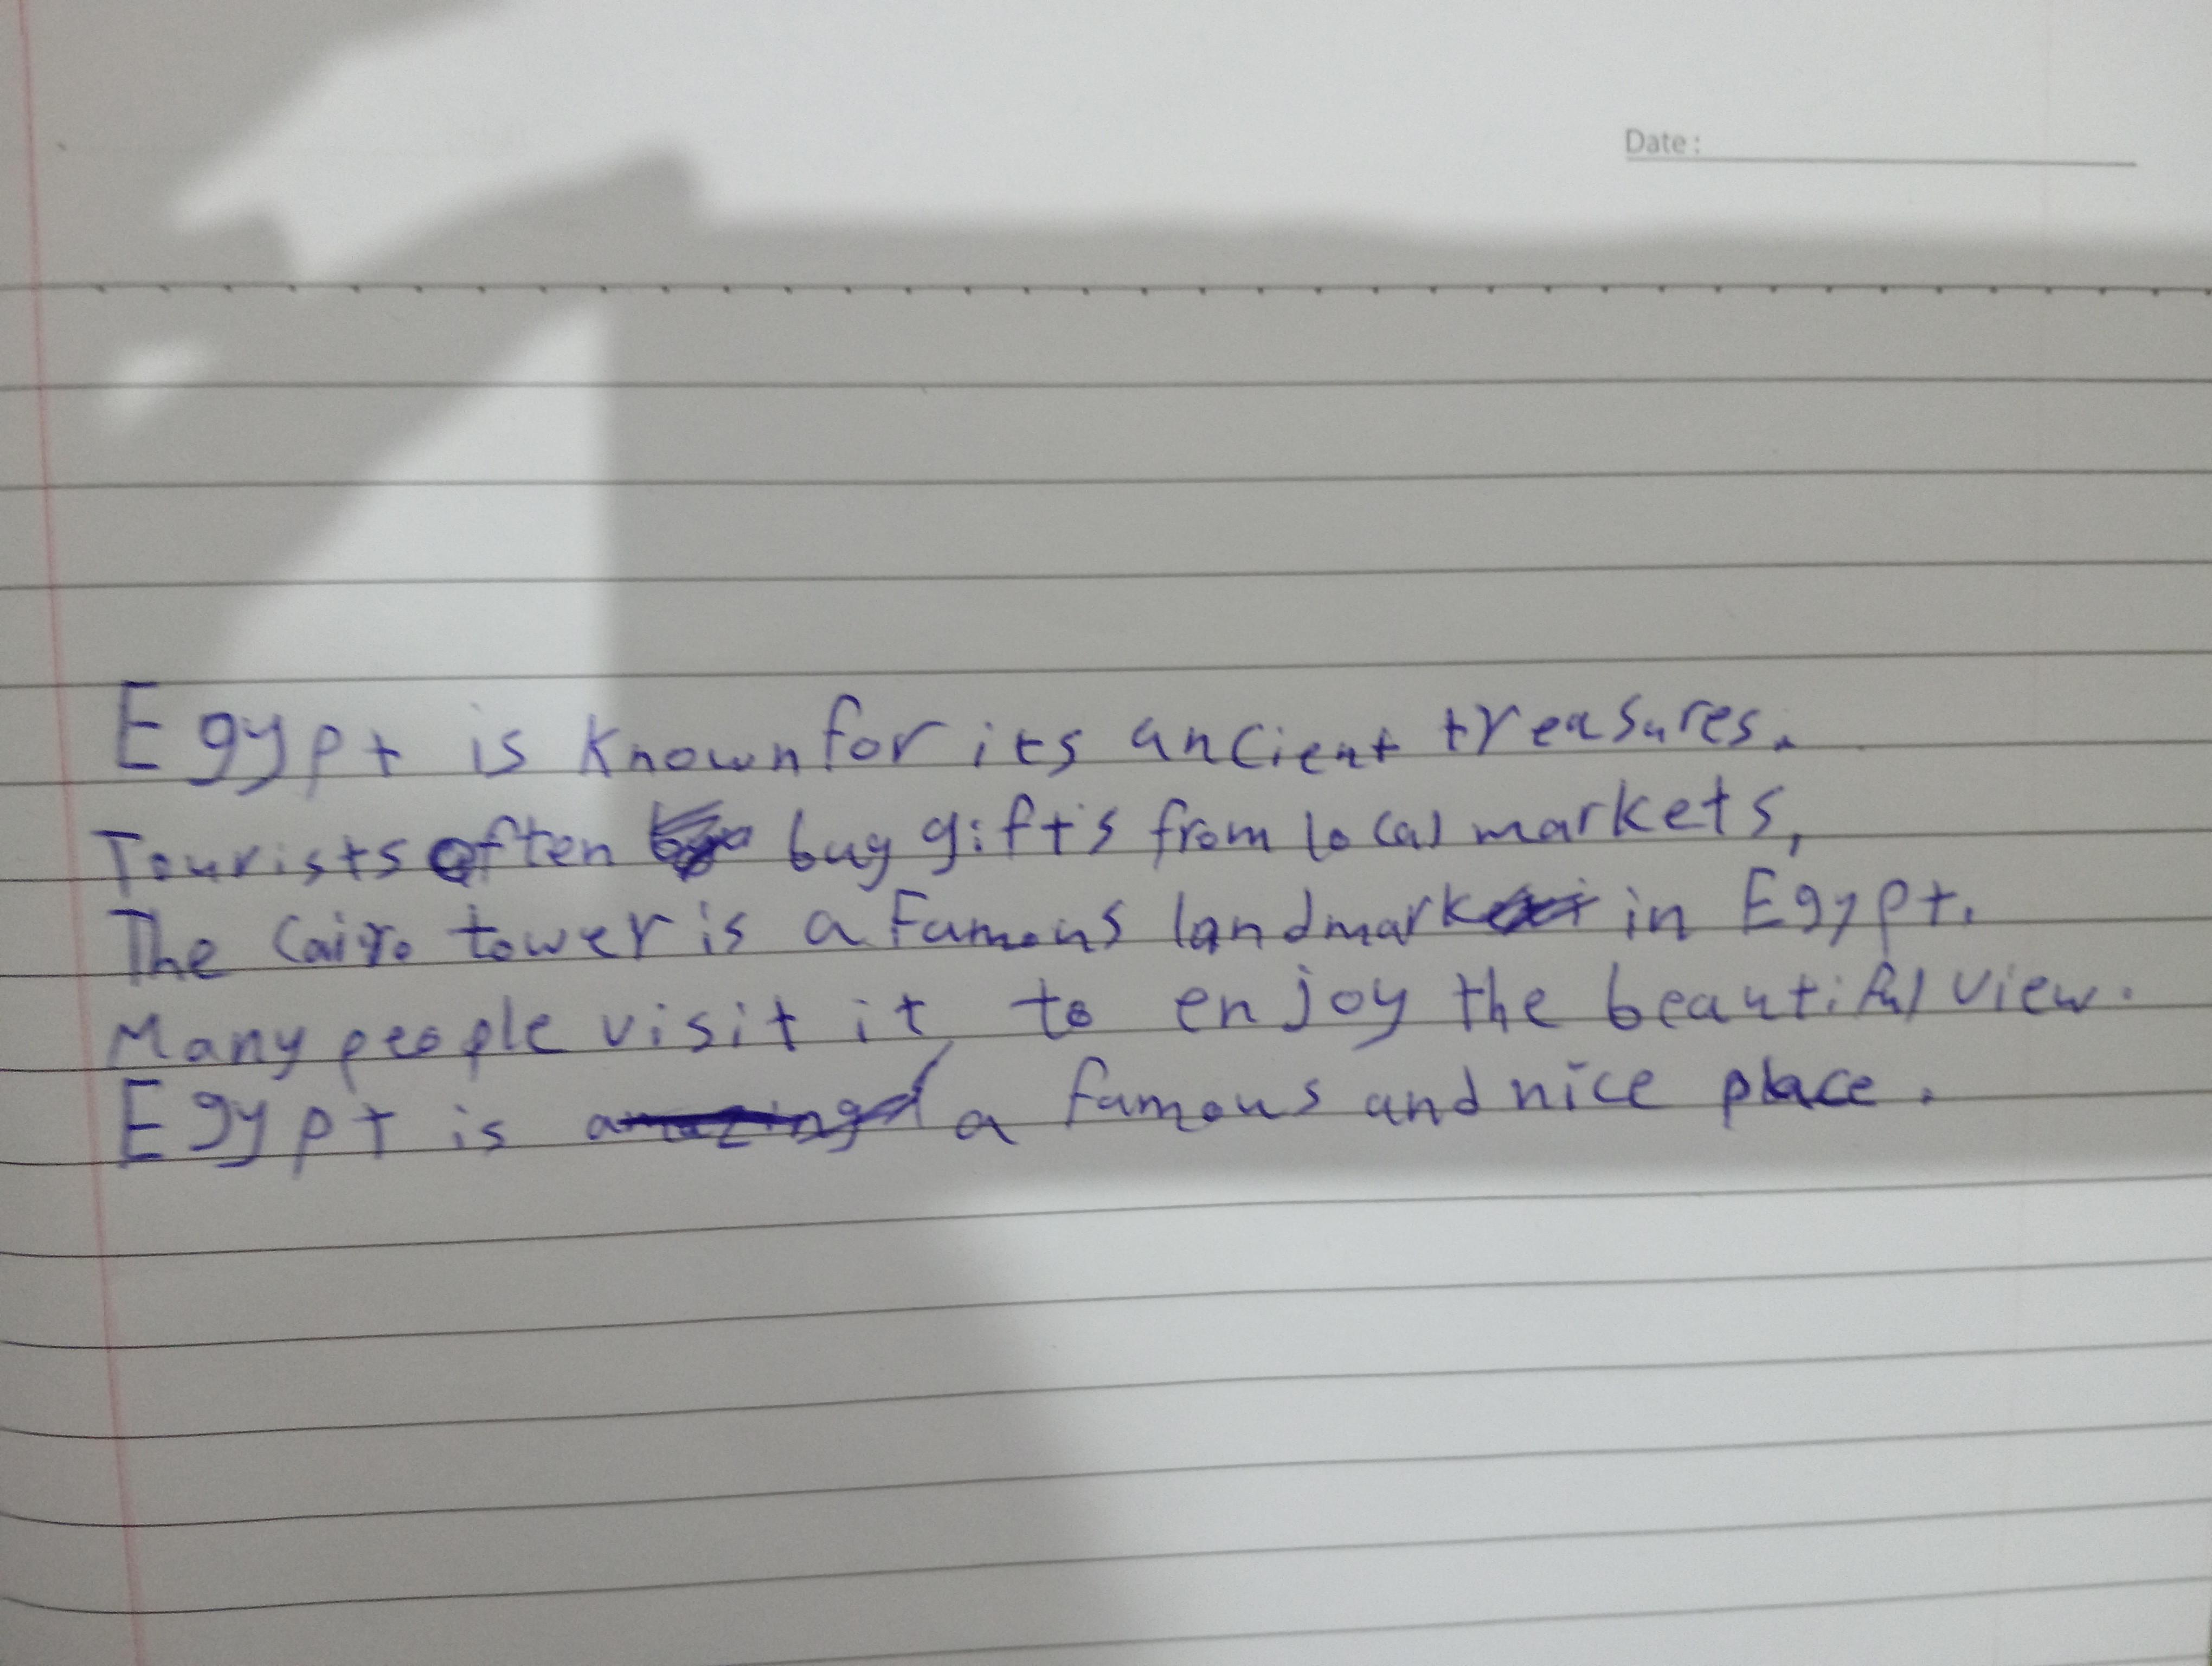 Date:
Egypt is known for its ancient treasures.
Tourists often buy gifts from local markets,
The Cairo tower is a Famous landmark in Egypt.
Many people visit it to enjoy the beautiful view.
Egypt is a famous and nice place.